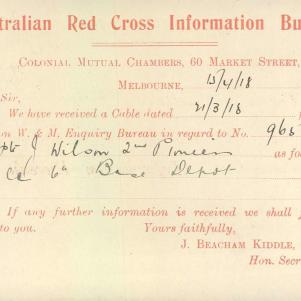 tralian Red Cross Information Bu
Colonial Mutual Chambers, 60 Market Street,
Melbourne, 15/4/18
Sir,
We have received a Cable dated 21/3/18
on W. & M. Enquiry Bureau in regard to No. 968
pt J Wilson 2nd Pioneers as fo
6th Base Depot
If any further information is received we shall
to you. Yours faithfully,
J. BEACHAM KIDDLE,
Hon. Secr